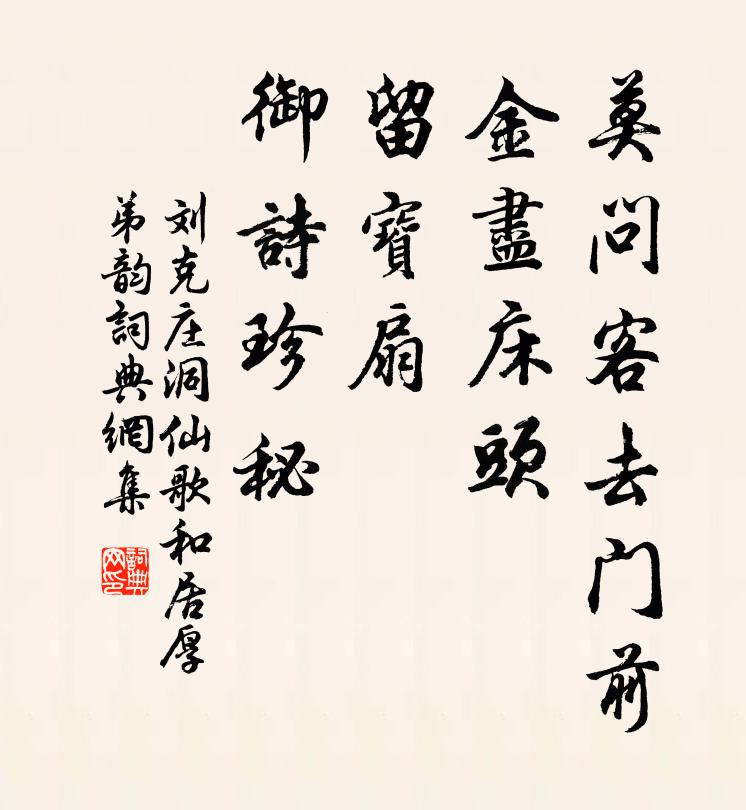 莫問客去門前
金盡床頭
留寶扇
御詩珍秘
刘克庄洞仙歌和居厚
弟韵詞典網集
詞典
网印